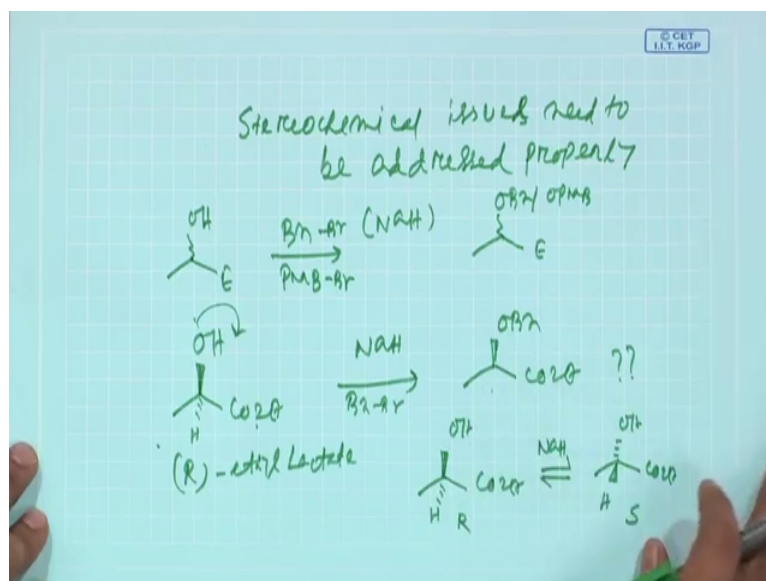 © CET
I.I.T. KGP
Stereochemical issues need to
be addressed properly
OH
E
Bn-Br (NaH)
PMB-Br
OBn/ OPMB
E
OH
CO2Et
H
(R)-ethyl Lactate
NaH
Bn-Br
OBn
CO2Et
??
OH
CO2Et
H R
NaH
OH
CO2Et
H S